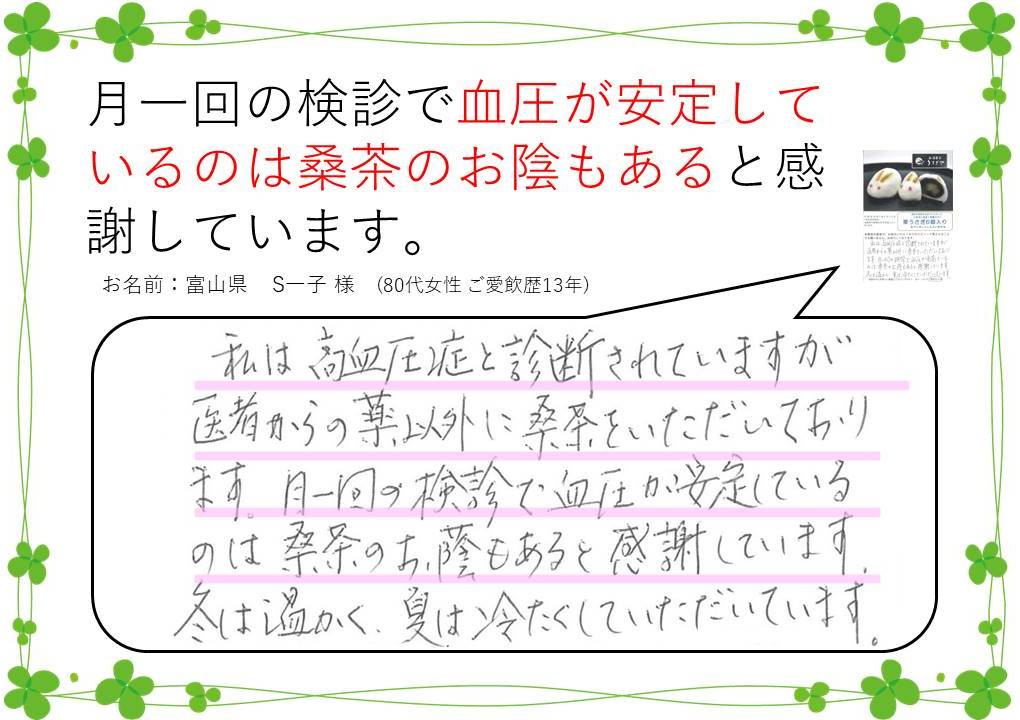 月一回の検診で血圧が安定して
いるのは桑茶のお陰もあると感
謝しています。
お名前：富山県　S一子 様　(80代女性 ご愛飲歴13年)
華うさぎ6個入り
私は高血圧症と診断されていますが
医者からの薬以外に桑茶をいただいており
ます。月一回の検診で血圧が安定している
のは桑茶のお蔭もあると感謝しています。
冬は温かく、夏は冷たくしていただいています。